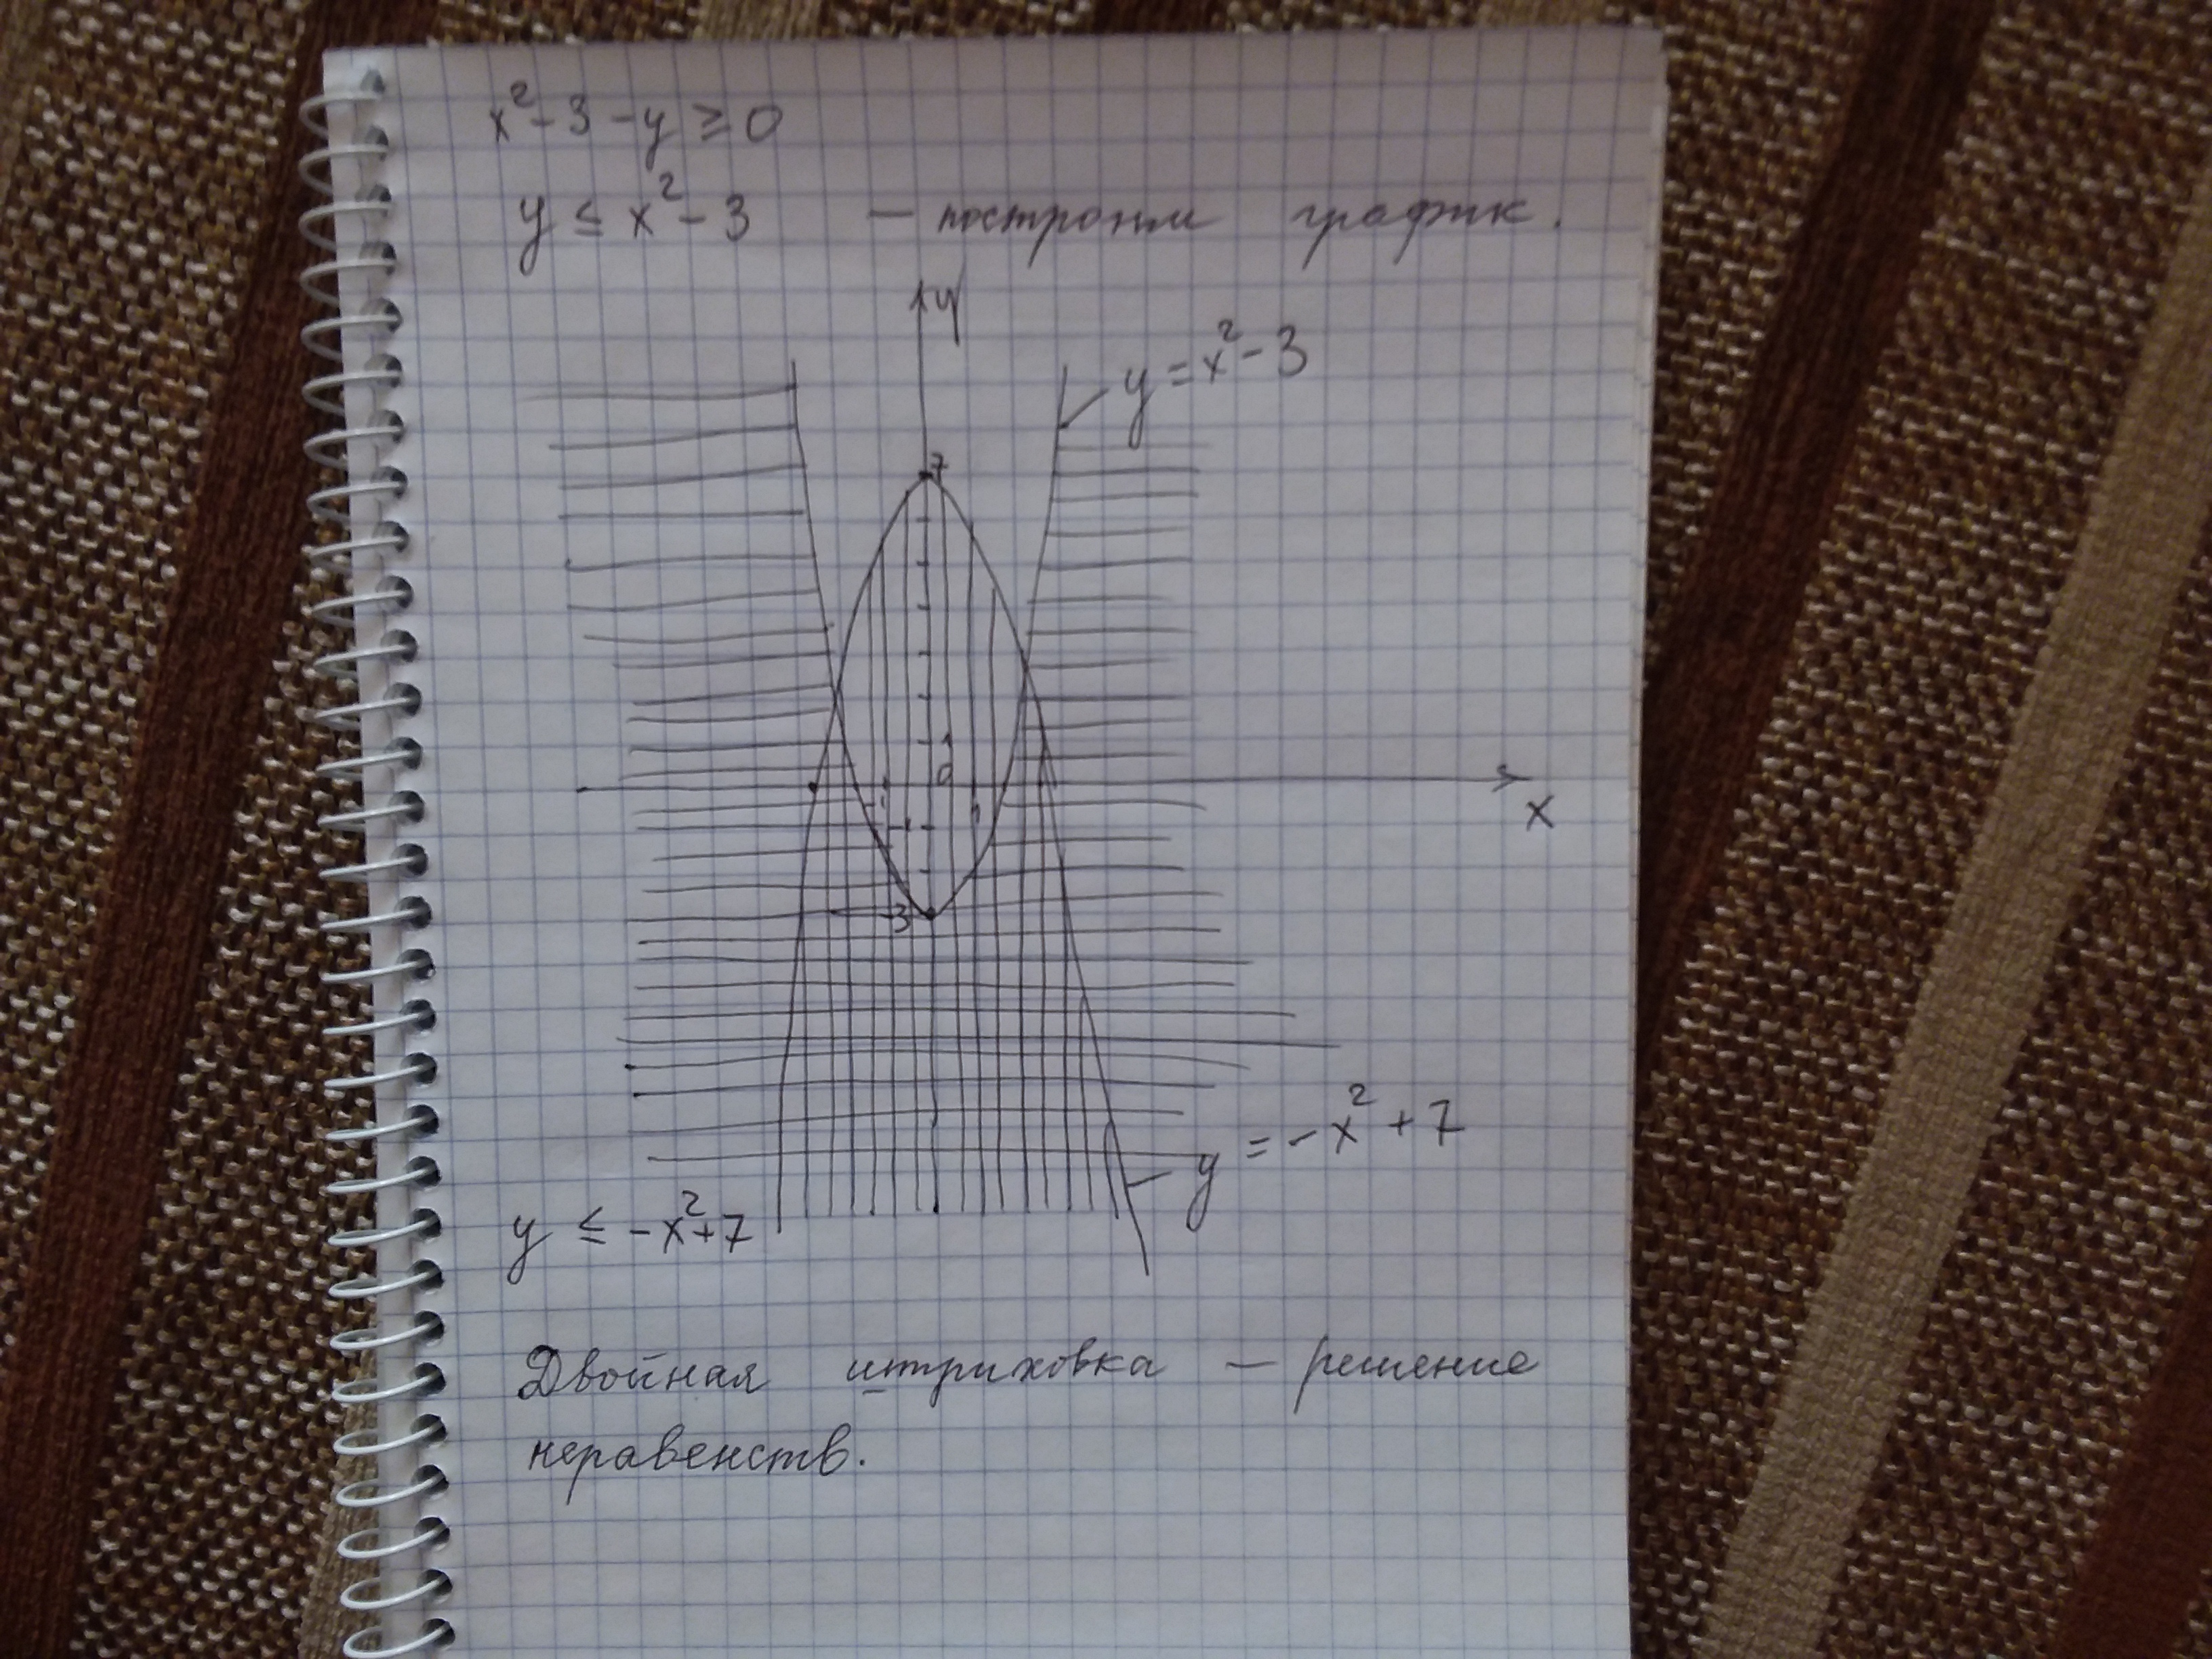 x²-3-y≥0
y ≤ x²-3 — построим график.
y
y=x²-3
7
1
0
x
-3
y = -x²+7
y ≤ -x²+7
Двойная штриховка — решение
неравенств.